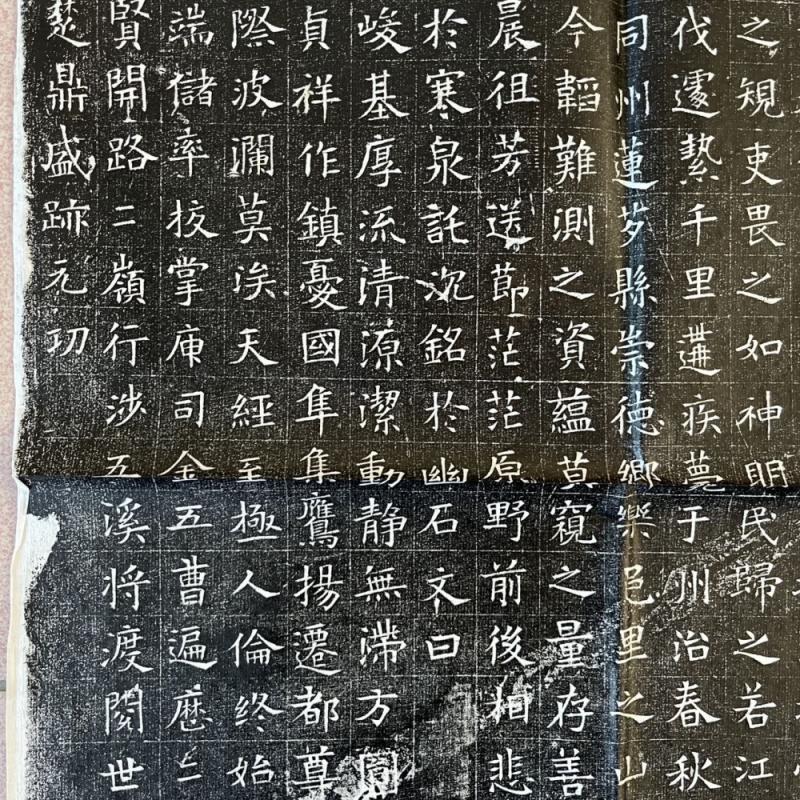 之規吏畏之如神明民歸之若江
伐遽縶千里遘疾薨于州治春秋
同州蓮芍縣崇德鄉樂邑里之山
今韜難測之資蘊莫窺之量存善
晨徂芳送節茫茫原野前後相悲
於寒泉託沉銘於幽石文曰
峻基厚流清源潔動静無滯方圓
貞祥作鎮憂國隼集鷹揚遷都尊
際波瀾莫涘天經至極人倫終始
端儲率拔掌庫司金五曹遍歷二
賢開路二嶺行涉五溪將渡閱世
鼎盛跡元功